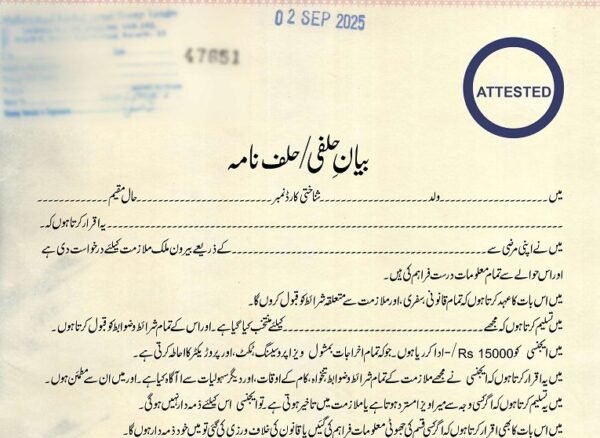 02 SEP 2025
47651
ATTESTED
بیانِ حلفی/حلف نامہ
میں ............ ولد ............ شناختی کارڈ نمبر ............ حال مقیم ............
............ یہ اقرار کرتا ہوں کہ۔
میں نے اپنی مرضی سے ............ کے ذریعے بیرون ملک ملازمت کیلئے درخواست دی ہے
اور اس حوالے سے تمام معلومات درست فراہم کی ہیں۔
میں اس بات کا عہد کرتا ہوں کہ تمام قانونی، سفری، اور ملازمت سے متعلقہ شرائط کو قبول کروں گا۔
میں تسلیم کرتا ہوں کہ مجھے ............ کیلئے منتخب کیا گیا ہے۔ اور اس کے تمام شرائط و ضوابط کو قبول کرتا ہوں۔
میں ایجنسی کو Rs 15000/- ادا کر رہا ہوں۔ جو کہ تمام اخراجات بمشول ویزا پروسیسنگ، ٹکٹ، اور پروٹیکٹر کا احاطہ کرتی ہے۔
میں یہ اقرار کرتا ہوں کہ ایجنسی نے مجھے ملازمت کے تمام شرائط و ضوابط، تنخواہ، کام کے اوقات، اور دیگر سہولیات سے آگاہ کیا ہے۔ اور میں ان سے مطمئن ہوں۔
میں یہ تسلیم کرتا ہوں کہ اگر کسی وجہ سے میرا ویزا مسترد ہوتا ہے یا ملازمت میں تاخیر ہوتی ہے۔ تو ایجنسی اس کیلئے ذمہ دار نہیں ہوگی۔
میں اس بات کا بھی اقرار کرتا ہوں کہ اگر کسی قسم کی جھوٹی معلومات فراہم کی گئیں یا قانون کی خلاف ورزی کی گئی تو میں خود ذمہ دار ہوں گا۔